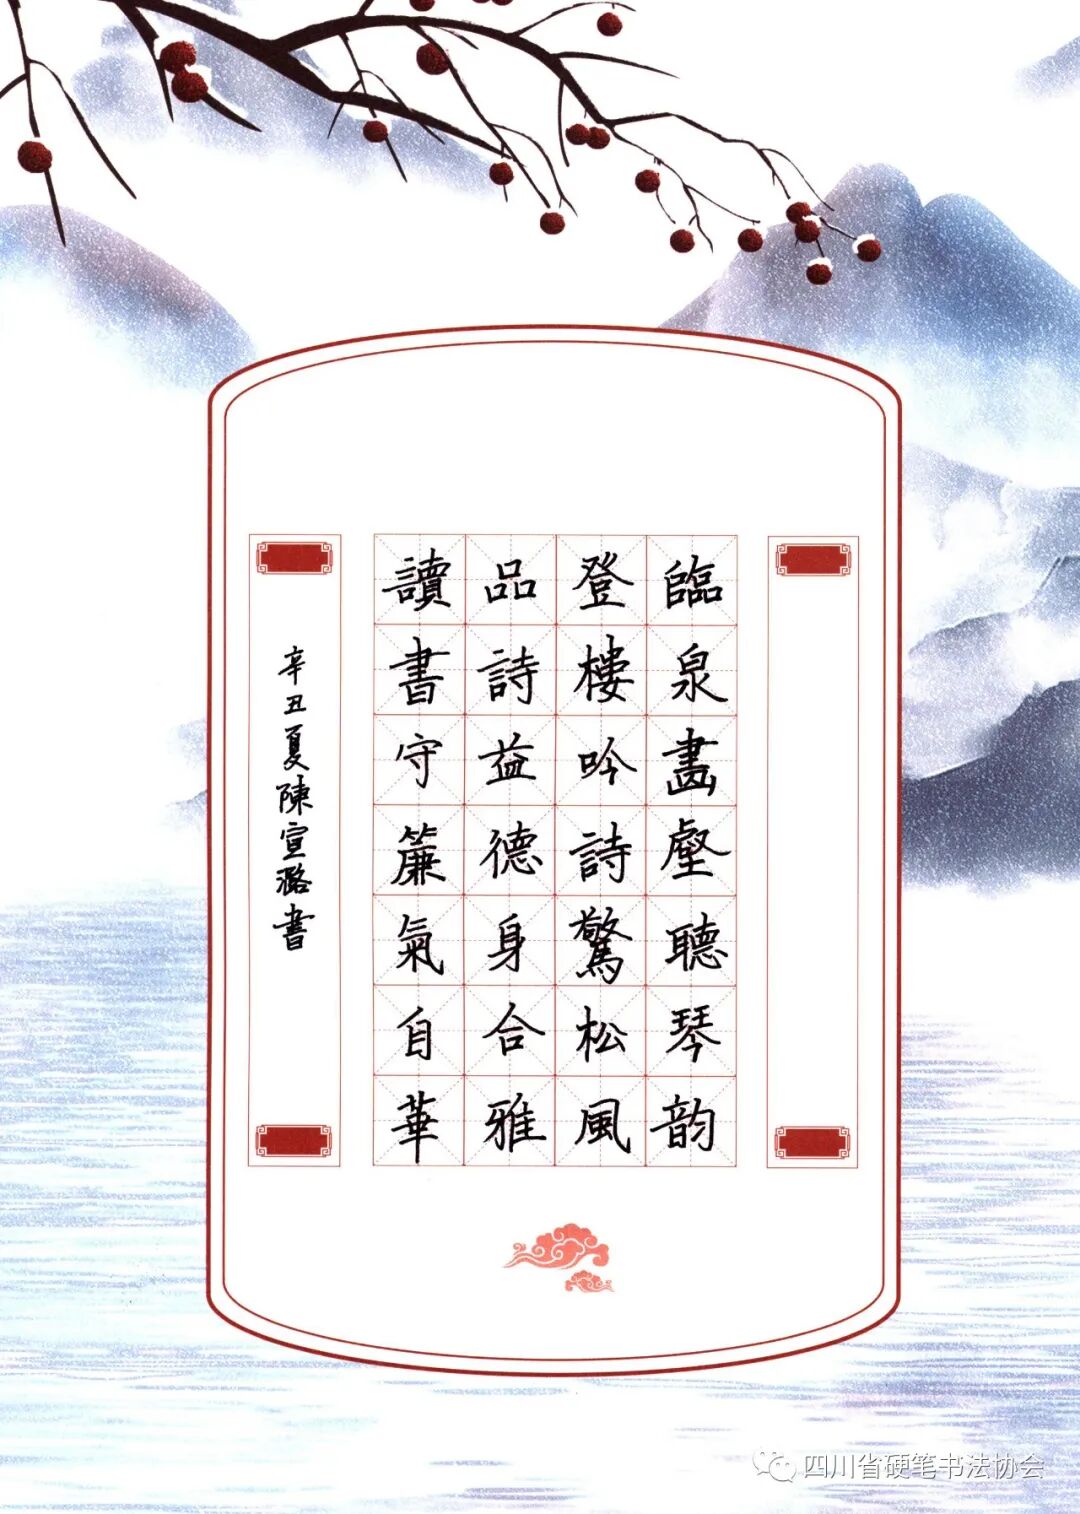 臨泉畵壑聽琴韵
登樓吟詩驚松風
品詩益德身合雅
讀書守簾氣自華
辛丑夏陳宣潞書
四川省硬笔书法协会